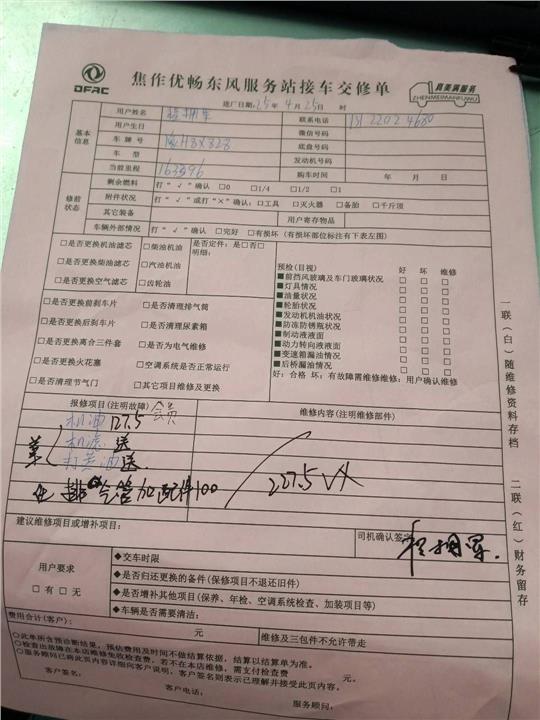 DFAC
焦作优畅东风服务站接车交修单
真美满服务
ZHENMEIMANFUWU
进厂日期:25年4月25日 时
基本信息
用户姓名 联系电话
用户生日 微信号码
车牌号 豫H8X828 底盘号码
车型 发动机号码
当前里程 163596 购车时间 年 月 日
修前状态
剩余燃料 打"√"确认 □0 □1/4 □1/2 □1
附件状况 打"√"或打"×"确认:□工具 □灭火器 □备胎 □千斤顶
其它装备 用户寄存物品
车辆外部情况 打"√"确认 □完好 □有损坏(有损坏部位标注有下表左图)
□是否更换机油滤芯 □柴油机油
□是否更换柴油滤芯 □汽油机油
□是否更换空气滤芯 □齿轮油
是否定件:是□否□
明细:
□是否更换前刹车片 □是否清理排气筒
□是否更换后刹车片 □是否清理尿素箱
□是否更换离合三件套 □是否为电气维修
□是否更换火花塞 □空调系统是否正常运行
□是否清理节气门 □其它项目维修及更换
预检(目视) 好 坏 维修
■前挡风玻璃及车门玻璃状况 □ □ □
■灯具情况 □ □ □
■油量状况 □ □ □
■轮胎状况 □ □ □
■发动机机油状况 □ □ □
■防冻防锈瓶状况 □ □ □
■制动液液面 □ □ □
■动力转向液液面 □ □ □
■变速箱漏油情况 □ □ □
■后桥漏油情况 □ □ □
好:合格 坏:有故障需维修维修:用户确认维修
报修项目(注明故障) 会员
维修内容(注明维修部件)
机油 127.5
机滤 送
打黄油 送
排气管加配件100
227.5 VX
建议维修项目或增补项目:
司机确认签字
用户要求
□有 □无
◆交车时限
◆是否归还更换的备件(保修项目不退还旧件)
◆是否增补其他项目(保养、年检、空调系统检查、加装项目等)
◆车辆是否需要清洁:
费用合计(客户): 元 维修及三包件不允许带走
○此单所含预诊断结果,预估费用及时间不做结算依据,结算以结算单为准。
○检查出故障在本店维修免收检查费,若不在本店维修,需支付检查费 元。
○服务顾问已将此页内容详细向客户说明,客户签名则表示已理解并接受此页内容。
客户签名: 客户电话: 服务顾问:
一联(白)随维修资料存档
二联(红)财务留存